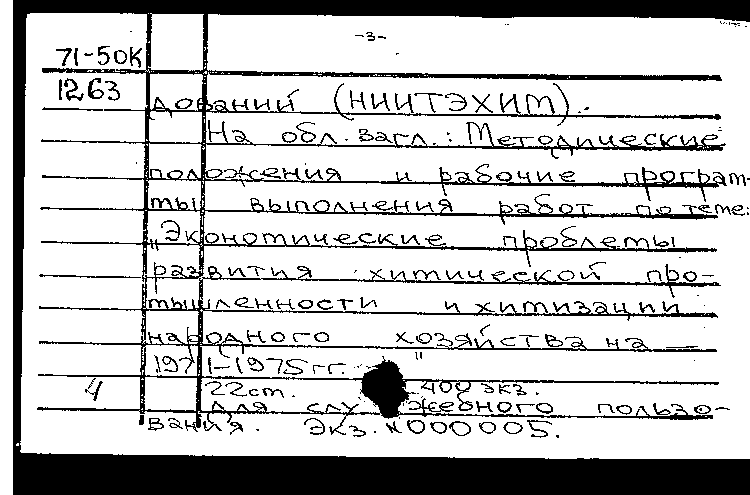 -3-
71-50К
1263
дований (НИИТЭХИМ).
На обл. загл.: Методические
положения и рабочие програм-
мы выполнения работ по теме:
„Экономические проблемы
развития химической про-
мышленности и химизации
народного хозяйства на
1971-1975 гг. "
4 22 см. 400 экз.
Для служебного пользо-
вания. Экз. №000005.